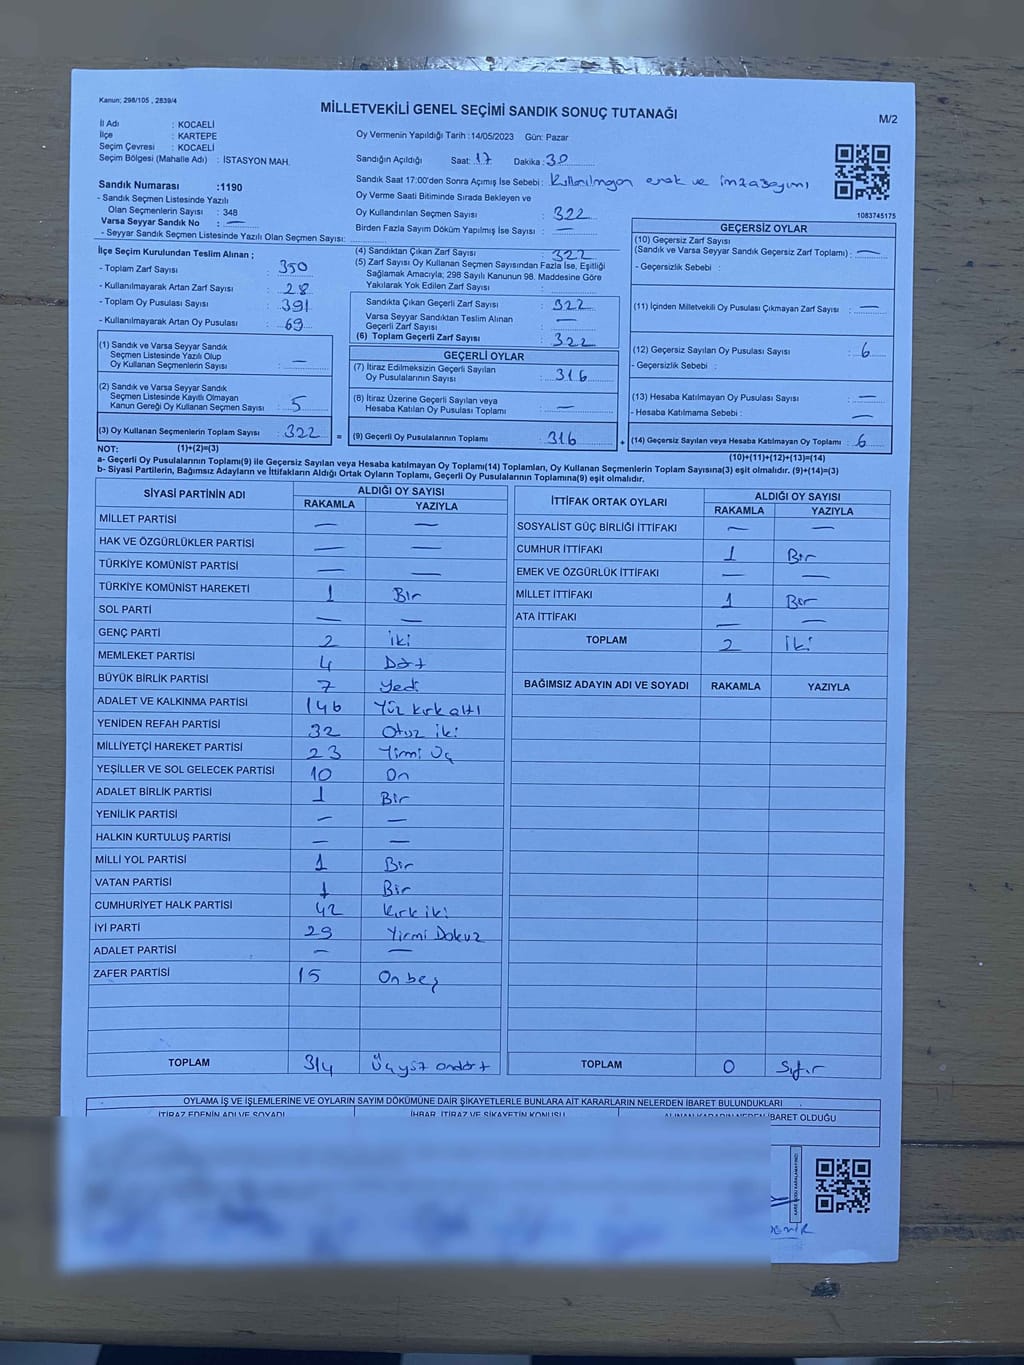 Kanun; 298/105 , 2839/4
MİLLETVEKİLİ GENEL SEÇİMİ SANDIK SONUÇ TUTANAĞI
M/2
İl Adı : KOCAELİ
İlçe : KARTEPE
Seçim Çevresi : KOCAELİ
Seçim Bölgesi (Mahalle Adı) : İSTASYON MAH.
Oy Vermenin Yapıldığı Tarih :14/05/2023 Gün: Pazar
Sandığın Açıldığı Saat: 17 Dakika : 30
Sandık Saat 17:00'den Sonra Açılmış İse Sebebi : Kullanılmayan evrak ve imza sayımı
Sandık Numarası :1190
- Sandık Seçmen Listesinde Yazılı
Olan Seçmenlerin Sayısı : 348
Varsa Seyyar Sandık No : —
- Seyyar Sandık Seçmen Listesinde Yazılı Olan Seçmen Sayısı:
Oy Verme Saati Bitiminde Sırada Bekleyen ve
Oy Kullandırılan Seçmen Sayısı : 322
Birden Fazla Sayım Döküm Yapılmış İse Sayısı : —
1083745175
İlçe Seçim Kurulundan Teslim Alınan ;
- Toplam Zarf Sayısı : 350
- Kullanılmayarak Artan Zarf Sayısı : 28
- Toplam Oy Pusulası Sayısı : 391
- Kullanılmayarak Artan Oy Pusulası : 69
(1) Sandık ve Varsa Seyyar Sandık
Seçmen Listesinde Yazılı Olup
Oy Kullanan Seçmenlerin Sayısı : —
(2) Sandık ve Varsa Seyyar Sandık
Seçmen Listesinde Kayıtlı Olmayan
Kanun Gereği Oy Kullanan Seçmen Sayısı : 5
(3) Oy Kullanan Seçmenlerin Toplam Sayısı : 322
(4) Sandıktan Çıkan Zarf Sayısı : 322
(5) Zarf Sayısı Oy Kullanan Seçmen Sayısından Fazla İse, Eşitliği
Sağlamak Amacıyla; 298 Sayılı Kanunun 98. Maddesine Göre
Yakılarak Yok Edilen Zarf Sayısı :
Sandıkta Çıkan Geçerli Zarf Sayısı : 322
Varsa Seyyar Sandıktan Teslim Alınan
Geçerli Zarf Sayısı : —
(6) Toplam Geçerli Zarf Sayısı : 322
GEÇERLİ OYLAR
(7) İtiraz Edilmeksizin Geçerli Sayılan
Oy Pusulalarının Sayısı : 316
(8) İtiraz Üzerine Geçerli Sayılan veya
Hesaba Katılan Oy Pusulası Toplamı : —
= (9) Geçerli Oy Pusulalarının Toplamı : 316
GEÇERSİZ OYLAR
(10) Geçersiz Zarf Sayısı
(Sandık ve Varsa Seyyar Sandık Geçersiz Zarf Toplamı) : —
- Geçersizlik Sebebi :
(11) İçinden Milletvekili Oy Pusulası Çıkmayan Zarf Sayısı : —
(12) Geçersiz Sayılan Oy Pusulası Sayısı : 6
- Geçersizlik Sebebi :
(13) Hesaba Katılmayan Oy Pusulası Sayısı : —
- Hesaba Katılmama Sebebi : —
+ (14) Geçersiz Sayılan veya Hesaba Katılmayan Oy Toplamı : 6
NOT: (1)+(2)=(3)
(10)+(11)+(12)+(13)=(14)
a- Geçerli Oy Pusulalarının Toplamı(9) ile Geçersiz Sayılan veya Hesaba katılmayan Oy Toplamı(14) Toplamları, Oy Kullanan Seçmenlerin Toplam Sayısına(3) eşit olmalıdır. (9)+(14)=(3)
b- Siyasi Partilerin, Bağımsız Adayların ve İttifakların Aldığı Ortak Oyların Toplamı, Geçerli Oy Pusulalarının Toplamına(9) eşit olmalıdır.
SİYASİ PARTİNİN ADI ALDIĞI OY SAYISI
RAKAMLA YAZIYLA
MİLLET PARTİSİ — —
HAK VE ÖZGÜRLÜKLER PARTİSİ — —
TÜRKİYE KOMÜNİST PARTİSİ — —
TÜRKİYE KOMÜNİST HAREKETİ 1 Bir
SOL PARTİ — —
GENÇ PARTİ 2 iki
MEMLEKET PARTİSİ 4 Dört
BÜYÜK BİRLİK PARTİSİ 7 Yedi
ADALET VE KALKINMA PARTİSİ 146 Yüz kırk altı
YENİDEN REFAH PARTİSİ 32 Otuz iki
MİLLİYETÇİ HAREKET PARTİSİ 23 Yirmi Üç
YEŞİLLER VE SOL GELECEK PARTİSİ 10 On
ADALET BİRLİK PARTİSİ 1 Bir
YENİLİK PARTİSİ — —
HALKIN KURTULUŞ PARTİSİ — —
MİLLİ YOL PARTİSİ 1 Bir
VATAN PARTİSİ 1 Bir
CUMHURİYET HALK PARTİSİ 42 Kırk iki
İYİ PARTİ 29 Yirmi Dokuz
ADALET PARTİSİ — —
ZAFER PARTİSİ 15 On beş
TOPLAM 314 Üçyüz ondört
İTTİFAK ORTAK OYLARI ALDIĞI OY SAYISI
RAKAMLA YAZIYLA
SOSYALİST GÜÇ BİRLİĞİ İTTİFAKI — —
CUMHUR İTTİFAKI 1 Bir
EMEK VE ÖZGÜRLÜK İTTİFAKI — —
MİLLET İTTİFAKI 1 Bir
ATA İTTİFAKI — —
TOPLAM 2 İki
BAĞIMSIZ ADAYIN ADI VE SOYADI RAKAMLA YAZIYLA
TOPLAM 0 Sıfır
OYLAMA İŞ VE İŞLEMLERİNE VE OYLARIN SAYIM DÖKÜMÜNE DAİR ŞİKAYETLERLE BUNLARA AİT KARARLARIN NELERDEN İBARET BULUNDUKLARI
İTİRAZ EDENİN ADI VE SOYADI İHBAR, İTİRAZ VE ŞİKAYETİN KONUSU ALINAN KARARIN NEDEN İBARET OLDUĞU